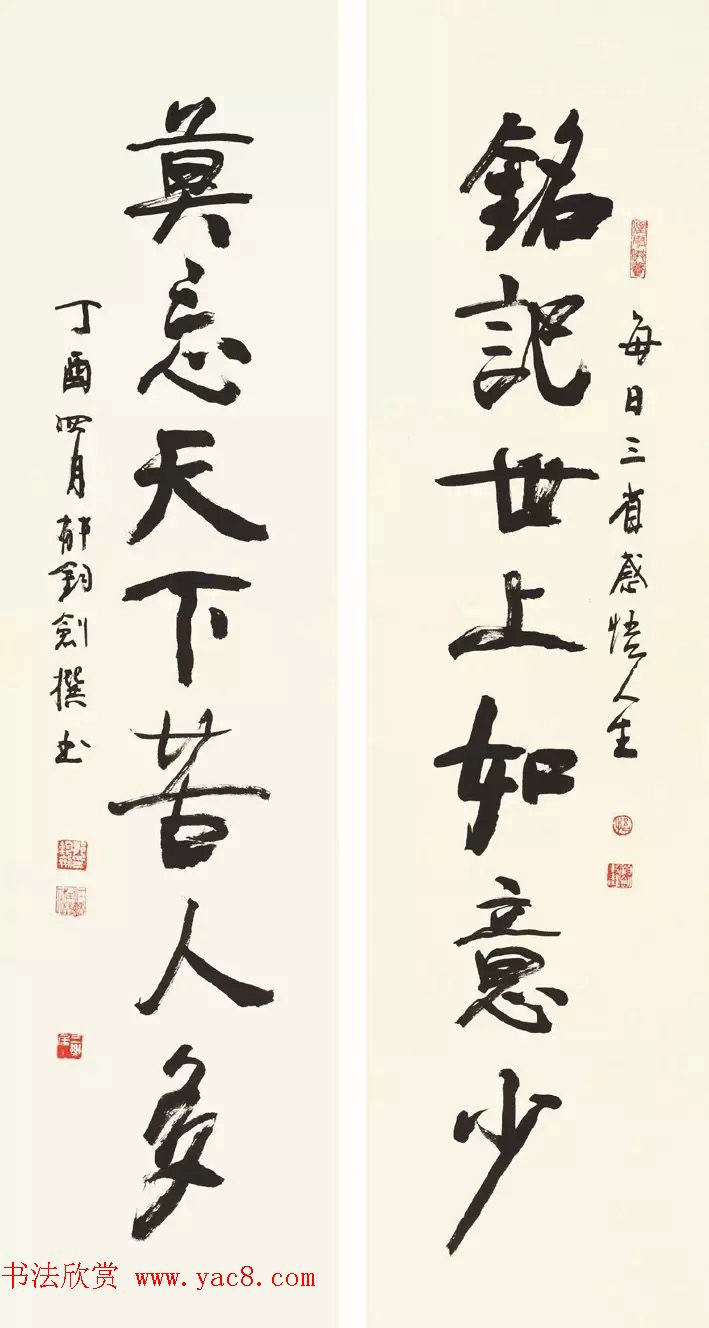 每日三省感悟人生
銘記世上如意少
莫忘天下苦人多
丁酉四月郁鈞劍撰书
书法欣赏 www.yac8.com